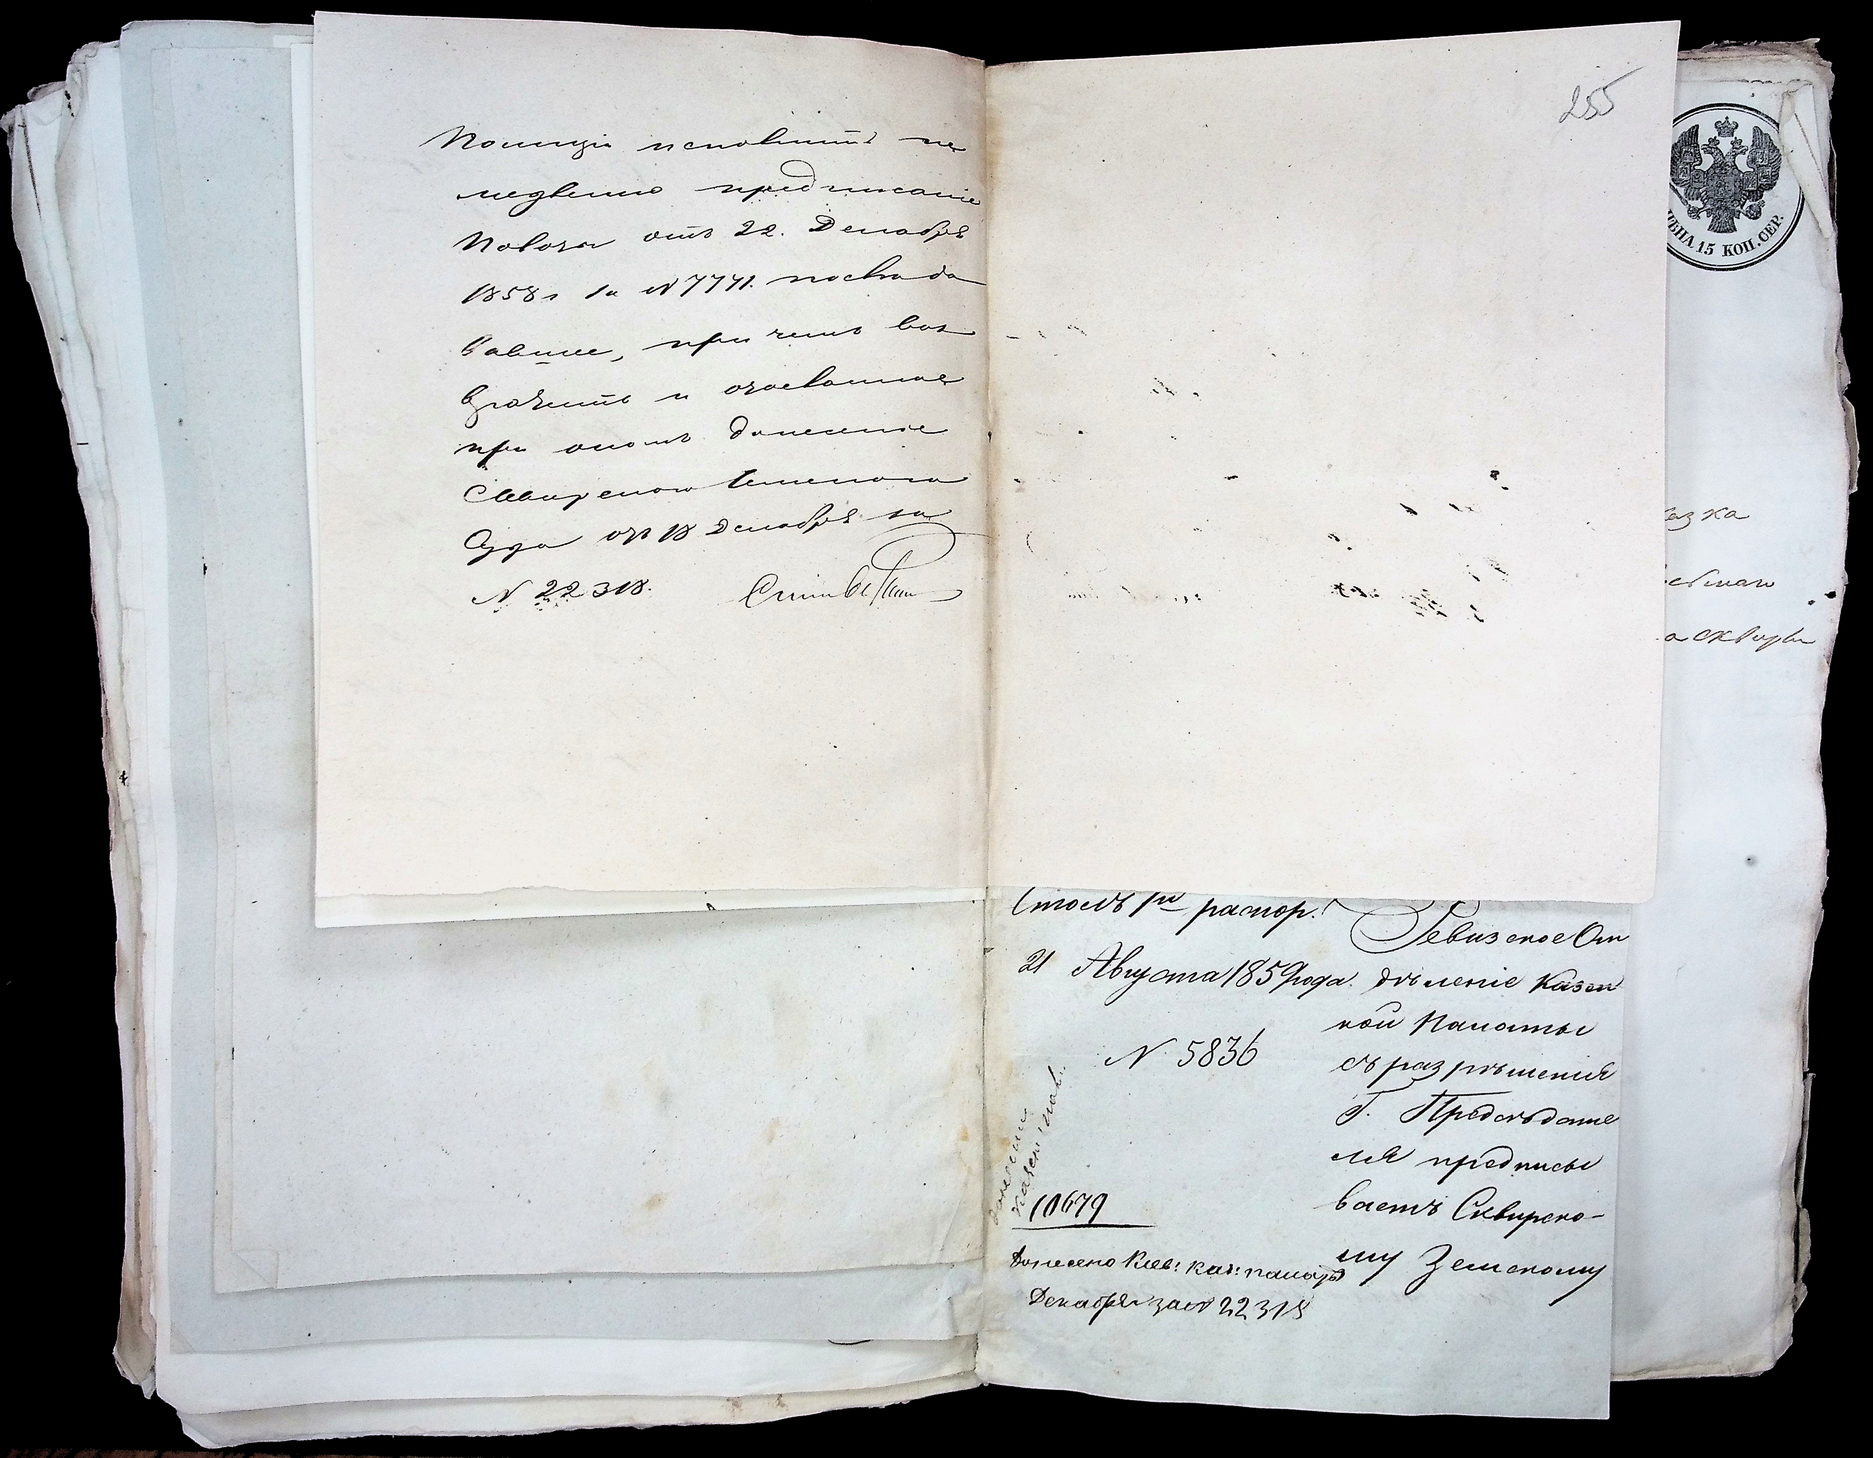 Полиціи исполнить не
медленно предписаніе
Палаты отъ 22. Декабря
1858 г за № 7771.
при чемъ воз
вратить и
при ономъ донесеніе
Сквирскаго Земскаго
Суда отъ 18 Декабря за
№ 22318.
255
ЦѢНА 15 КОП. СЕР.
азка
а Сквиры
Столъ 1й распор.
21 Августа 1859 года.
№ 5836
Ревизское От
дѣленіе Казен
ной Палаты
съ разрѣшенія
Г. Предсѣдате
ля предписы
ваетъ Сквирско-
му Земскому
10679
Донесено Кіев: каз: палатѣ
Декабря за № 22318